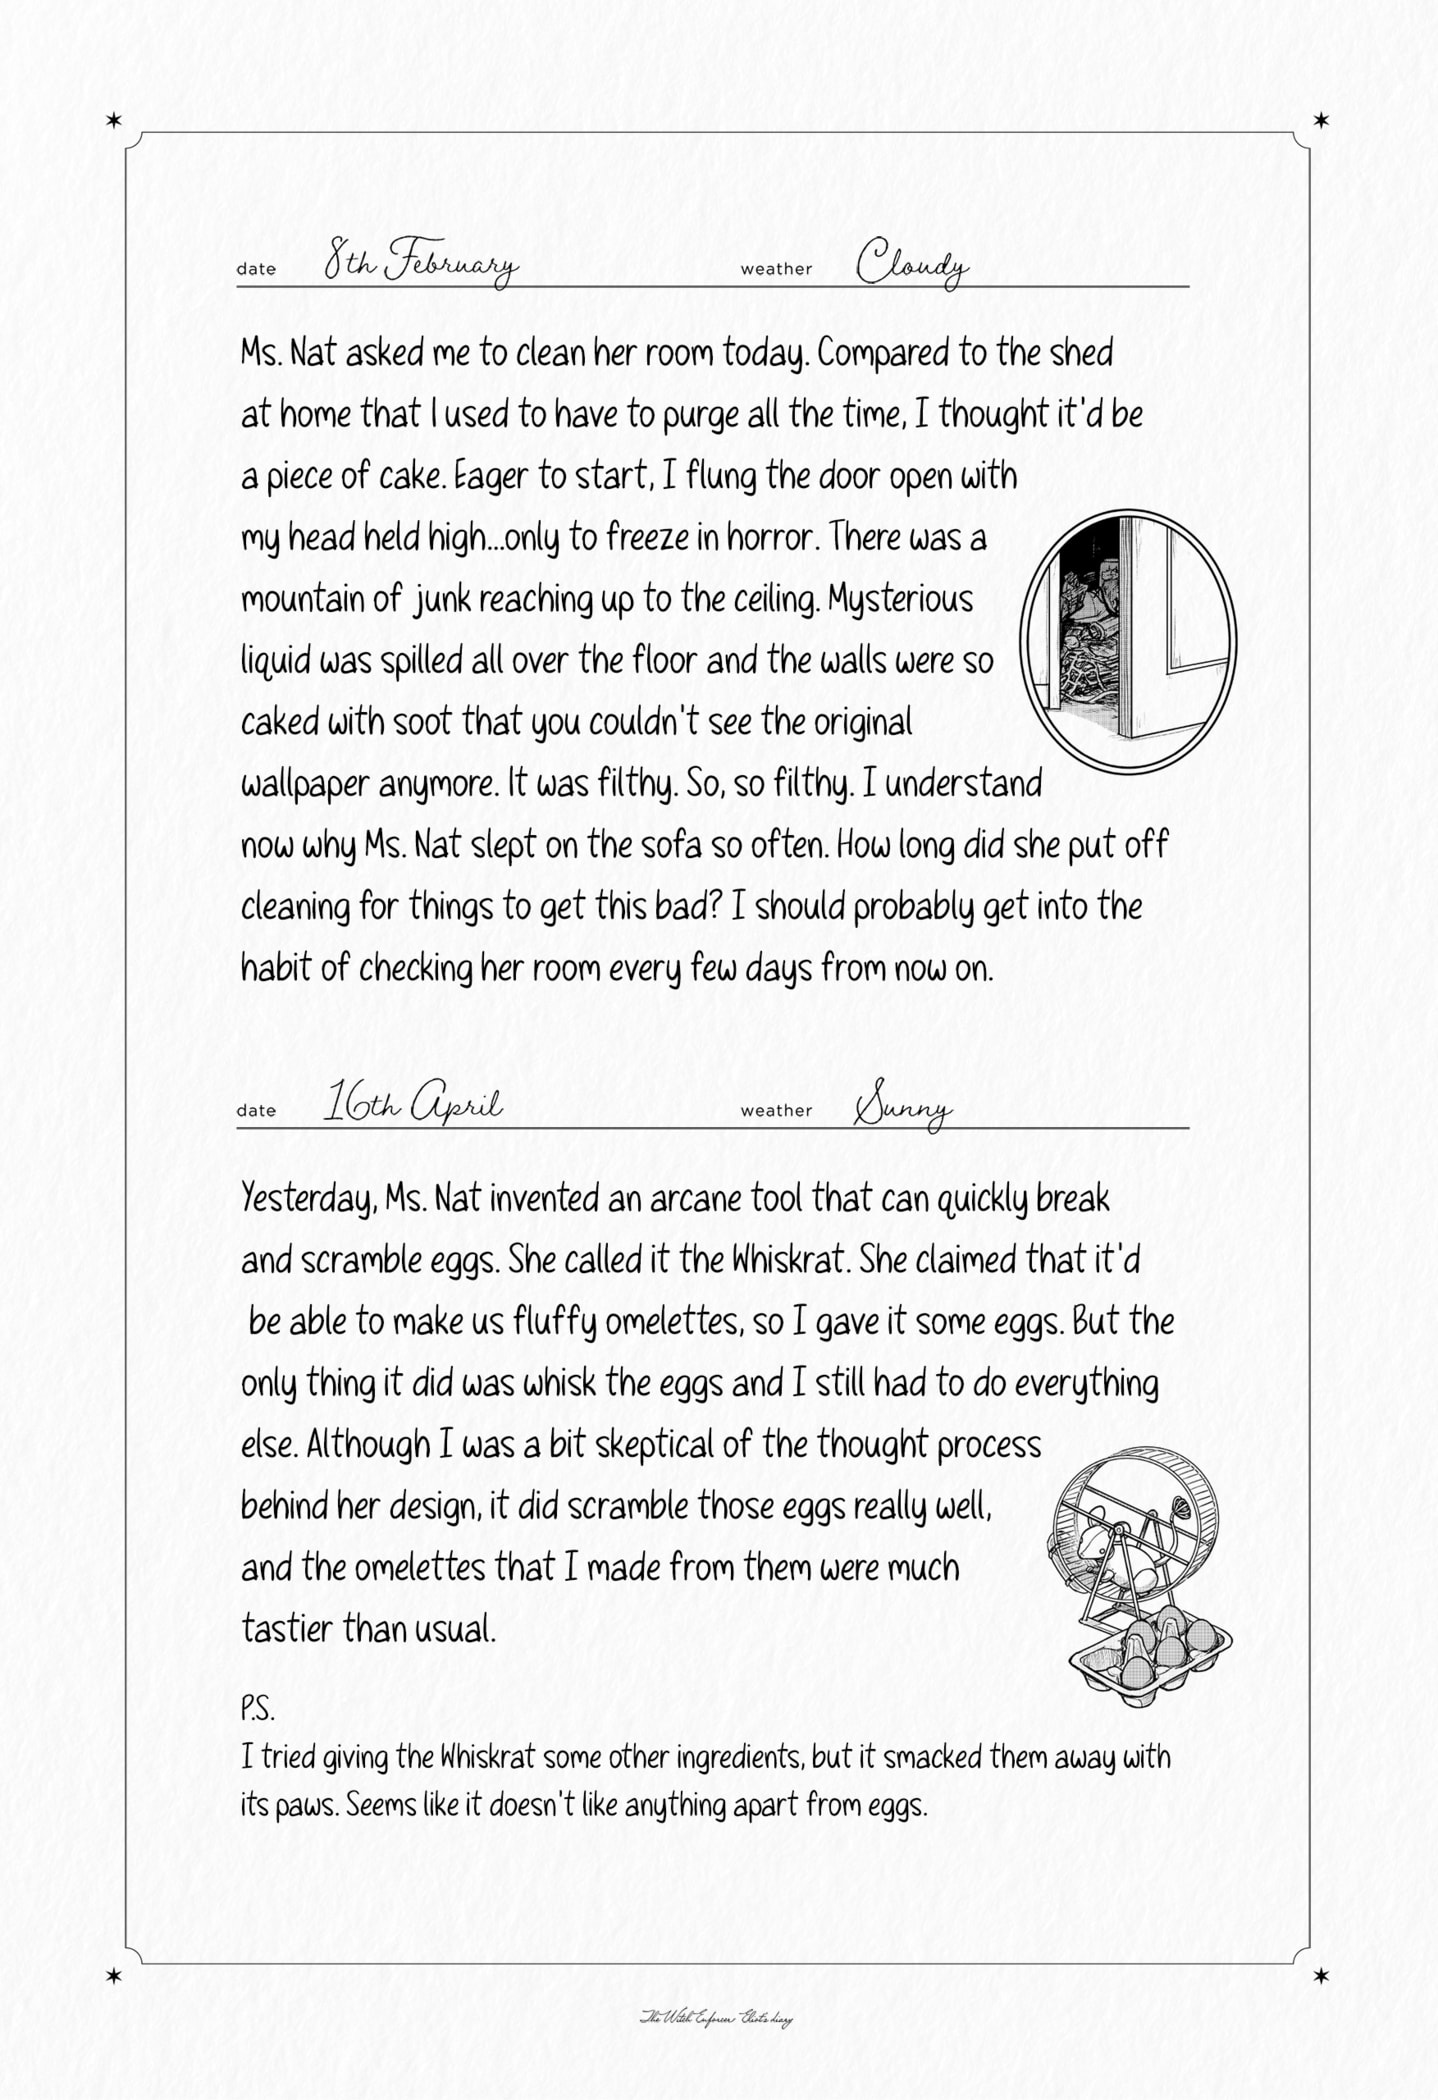 date 8th February weather Cloudy
Ms. Nat asked me to clean her room today. Compared to the shed
at home that I used to have to purge all the time, I thought it'd be
a piece of cake. Eager to start, I flung the door open with
my head held high...only to freeze in horror. There was a
mountain of junk reaching up to the ceiling. Mysterious
liquid was spilled all over the floor and the walls were so
caked with soot that you couldn't see the original
wallpaper anymore. It was filthy. So, so filthy. I understand
now why Ms. Nat slept on the sofa so often. How long did she put off
cleaning for things to get this bad? I should probably get into the
habit of checking her room every few days from now on.
date 16th April weather Sunny
Yesterday, Ms. Nat invented an arcane tool that can quickly break
and scramble eggs. She called it the Whiskrat. She claimed that it'd
be able to make us fluffy omelettes, so I gave it some eggs. But the
only thing it did was whisk the eggs and I still had to do everything
else. Although I was a bit skeptical of the thought process
behind her design, it did scramble those eggs really well,
and the omelettes that I made from them were much
tastier than usual.
P.S.
I tried giving the Whiskrat some other ingredients, but it smacked them away with
its paws. Seems like it doesn't like anything apart from eggs.
The Witch Enforcer Eliot's diary